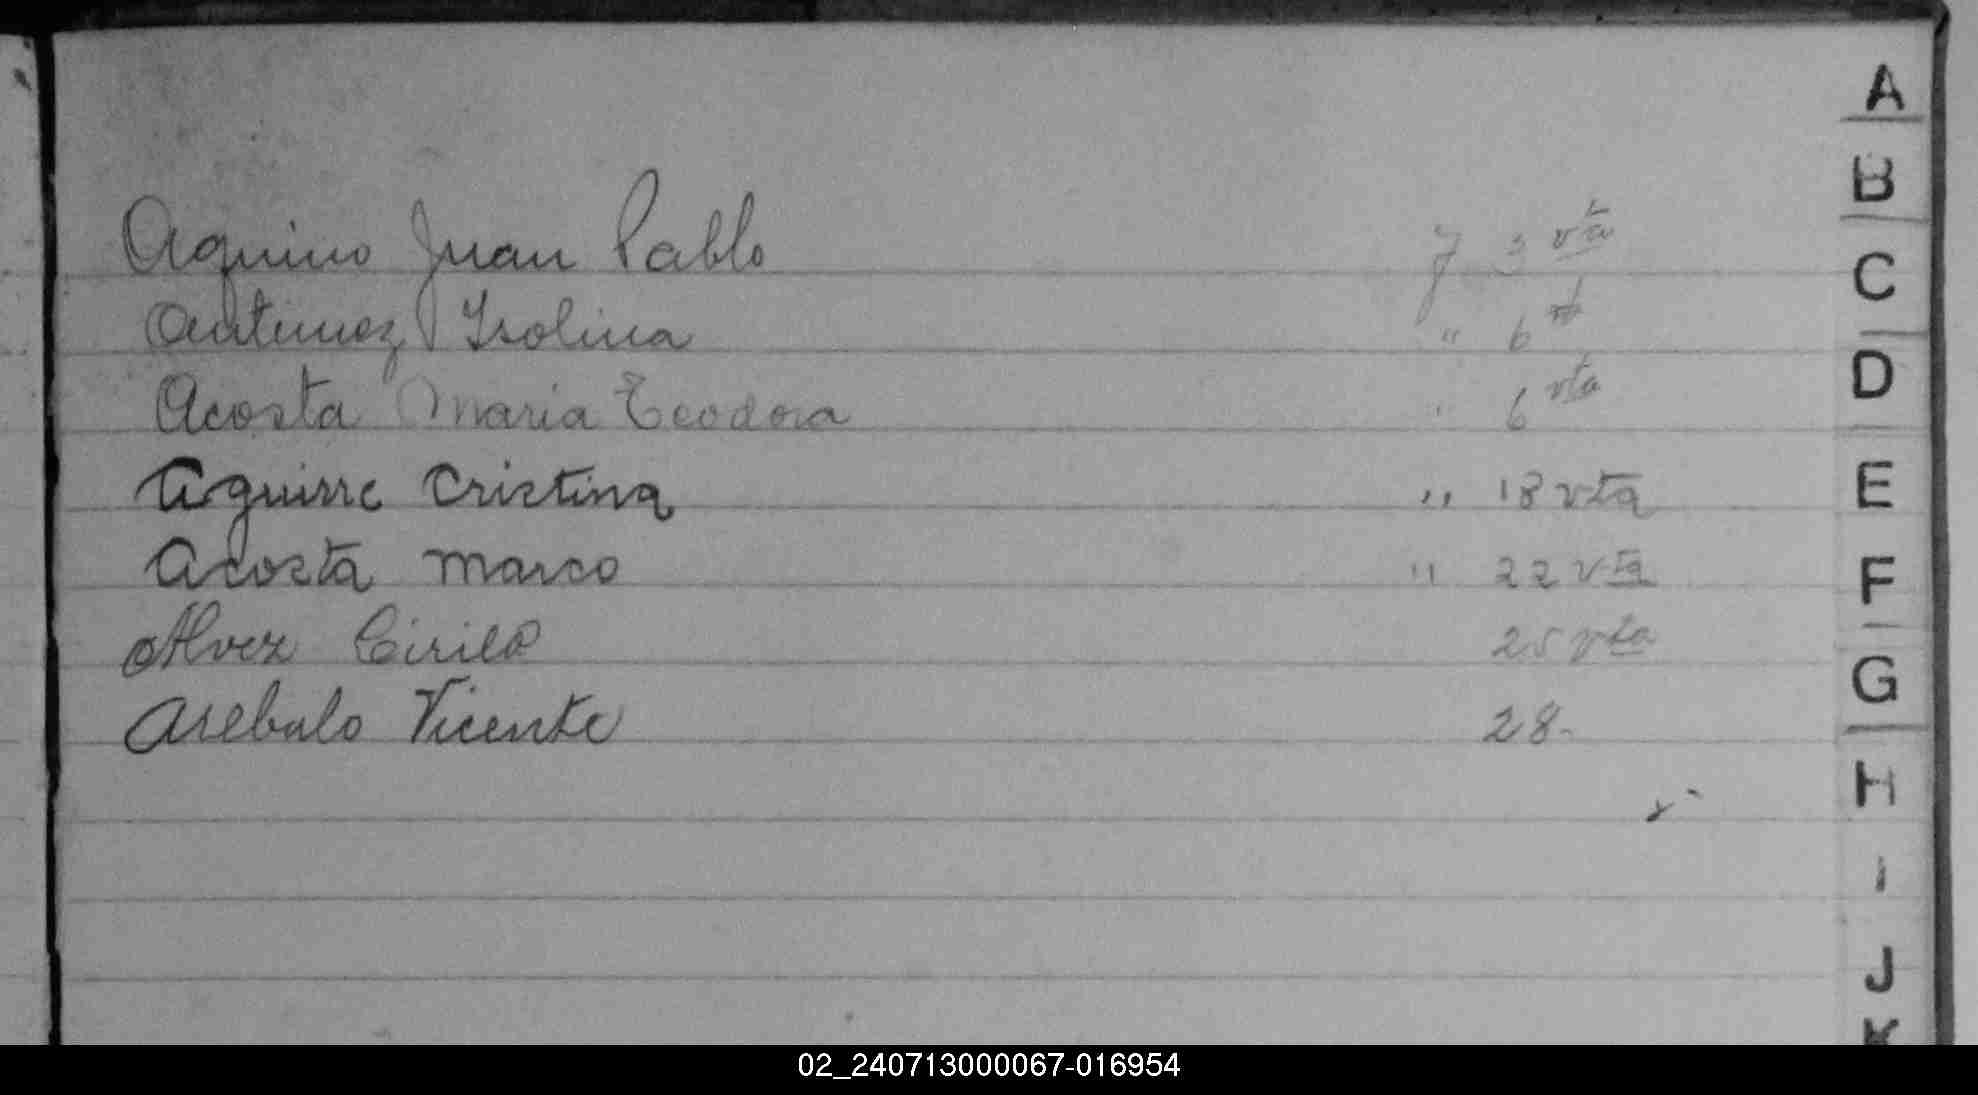 Aquino Juan Pablo f 3 vta
Antunez Isolina " 6 vta
Acosta Maria Teodora " 6 vta
Aguirre Cristina " 18 vta
Acosta Marco " 22 vta
Alvez Cirilo 25 vta
Arebalo Vicente 28-
A
B
C
D
E
F
G
H
I
J
K
02_240713000067-016954